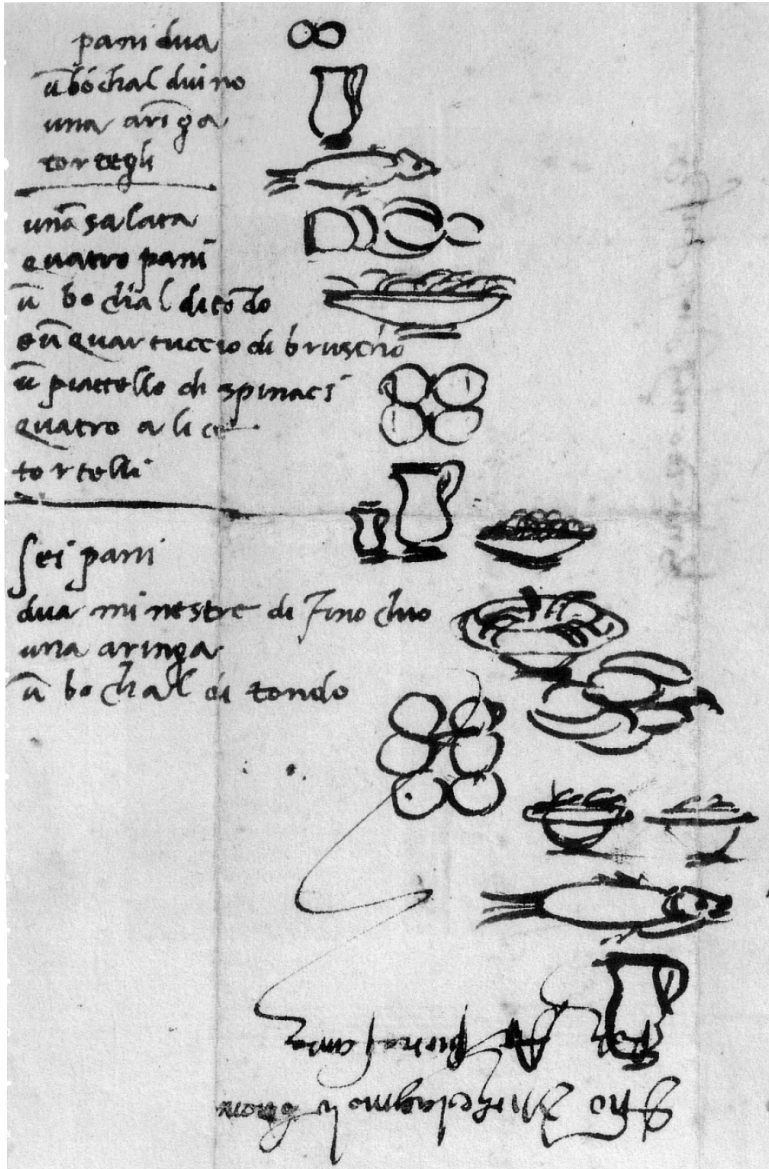 pani dua
ū bochal duino
una aringa
tortegli
una salata
quatro pani
ū bochal ditōdo
e ū quartuccio di bruscho
ū piattello di spinaci
quatro alice
tortelli
sei pani
dua minestre di finochio
una aringa
ū bochal di tondo